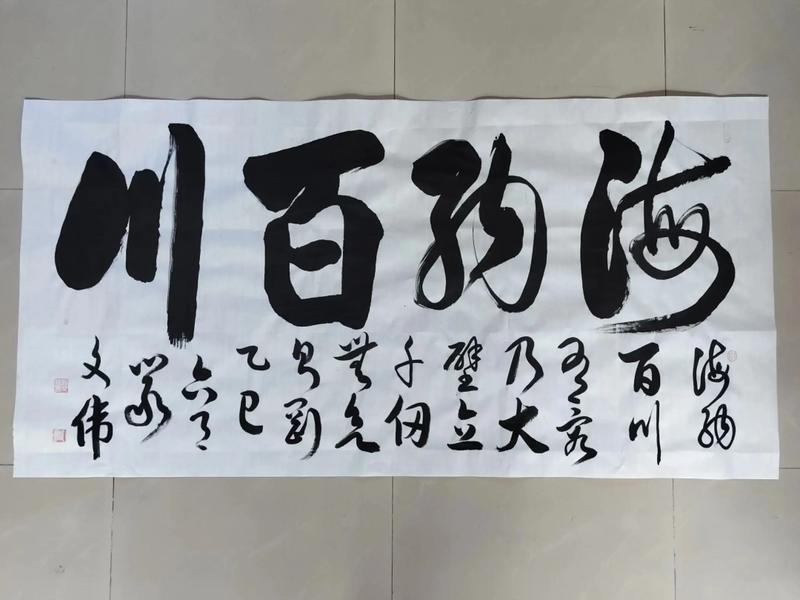 海納百川
海納
百川
有容
乃大
壁立
千仞
無欲
則剛
乙巳
六月
文伟